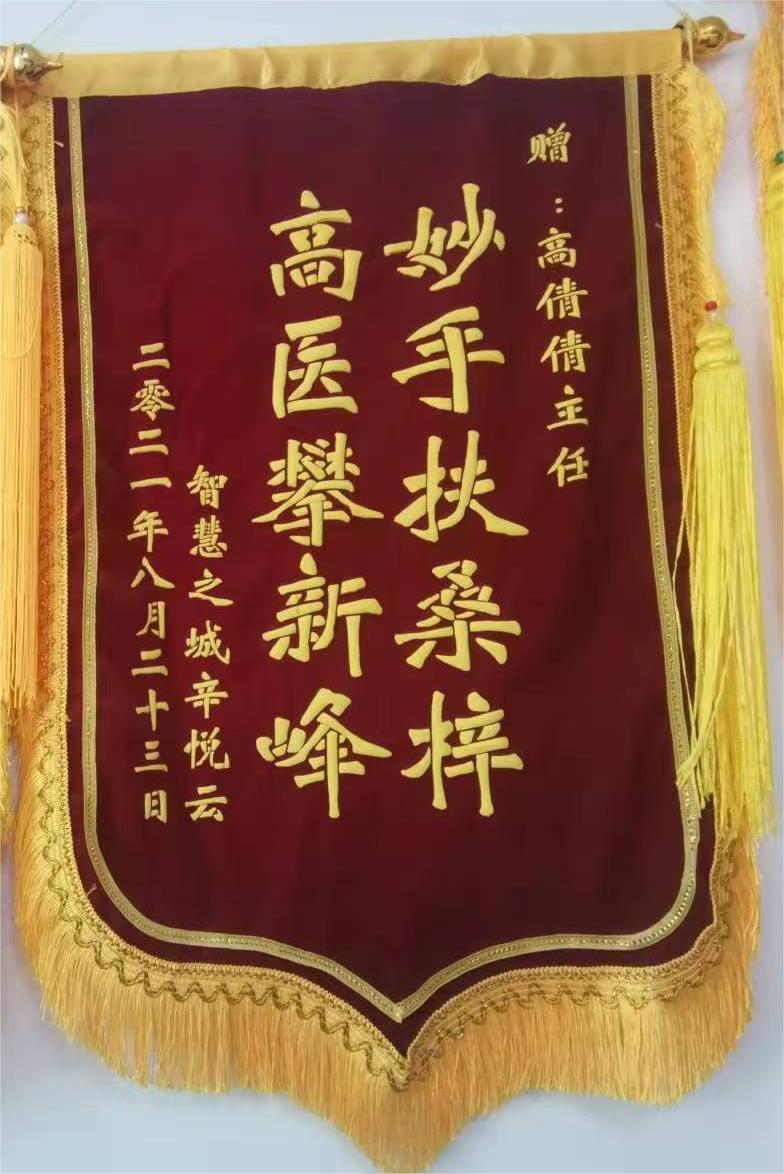 赠：高倩倩主任
妙手扶桑梓
高医攀新峰
智慧之城辛悦云
二零二一年八月二十三日